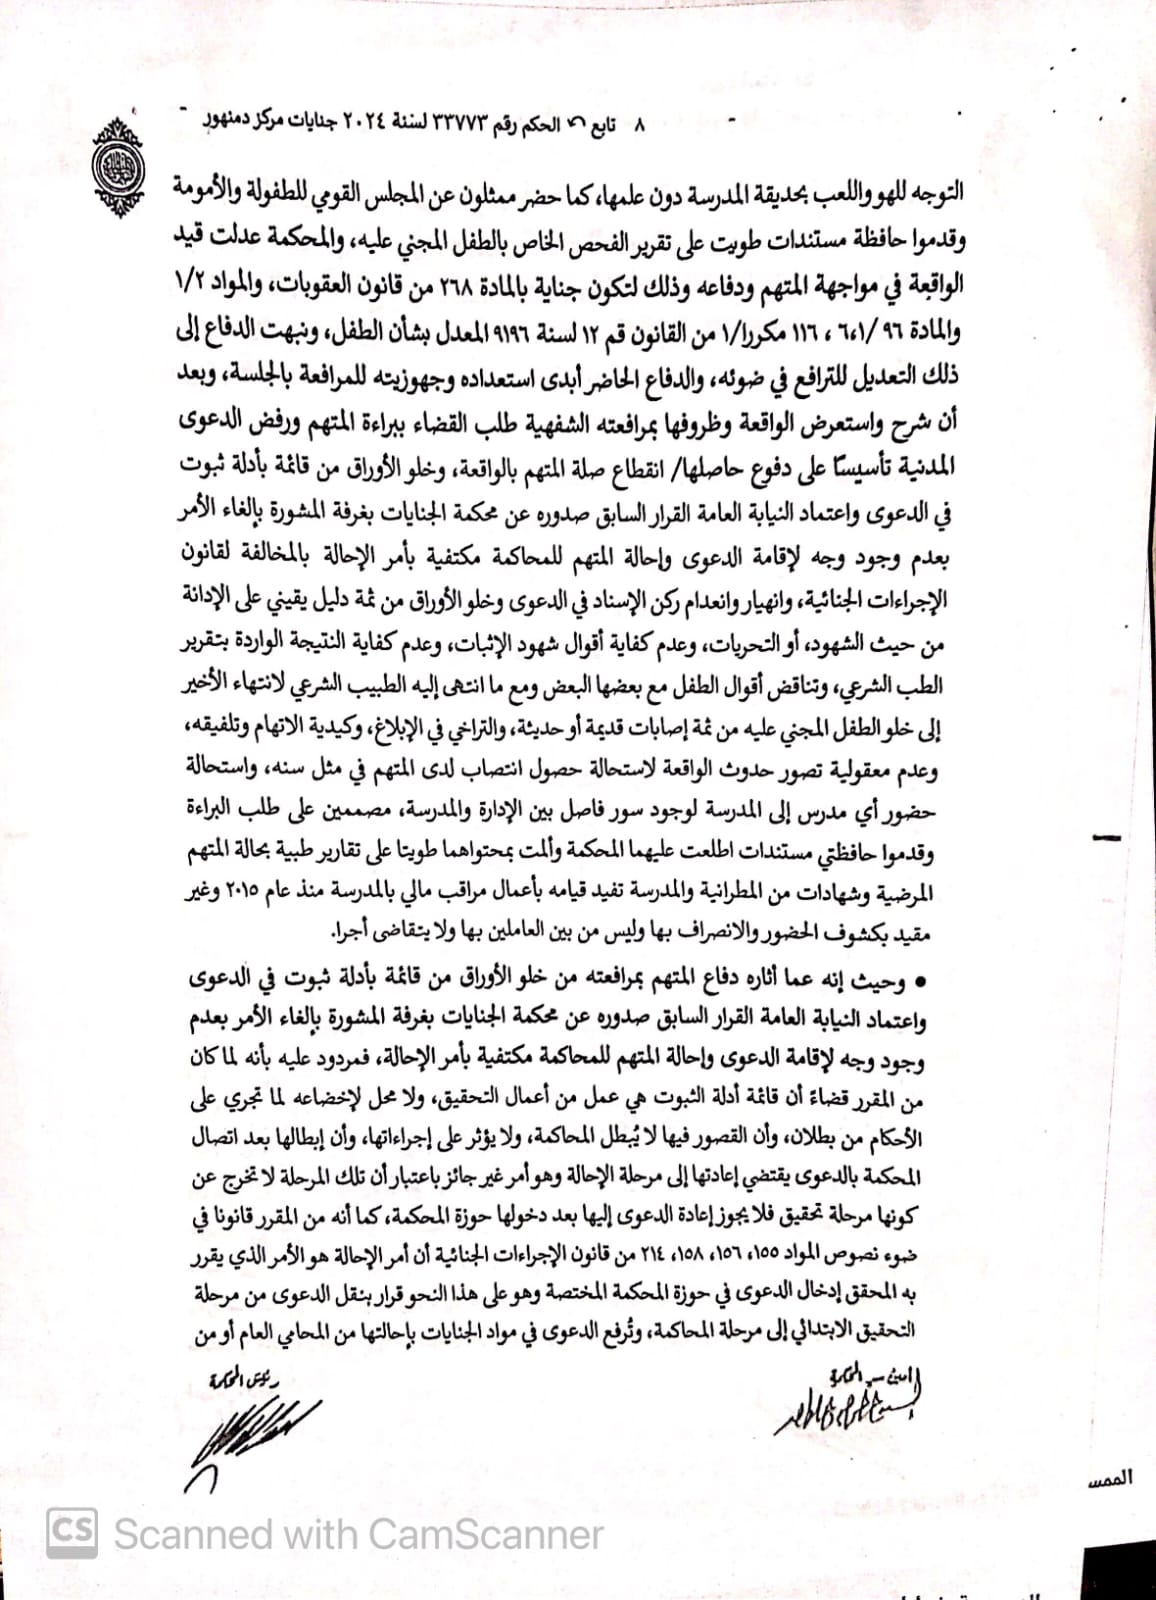 ٨ تابع الحكم رقم ٣٣٧٧٣ لسنة ٢٠٢٤ جنايات مركز دمنهور
التوجه للهو واللعب بحديقة المدرسة دون علمها، كما حضر ممثلون عن المجلس القومي للطفولة والأمومة
وقدموا حافظة مستندات طويت على تقرير الفحص الخاص بالطفل المجني عليه، والمحكمة عدلت قيد
الواقعة في مواجهة المتهم ودفاعه وذلك لتكون جناية بالمادة ٢٦٨ من قانون العقوبات، والمواد ١/٢
والمادة ٩٦ /٦،١ ، ١١٦ مكررا/١ من القانون قم ١٢ لسنة ٩١٩٦ المعدل بشأن الطفل، ونبهت الدفاع إلى
ذلك التعديل للترافع في ضوئه، والدفاع الحاضر أبدى استعداده وجهوزيته للمرافعة بالجلسة، وبعد
أن شرح واستعرض الواقعة وظروفها بمرافعته الشفهية طلب القضاء ببراءة المتهم ورفض الدعوى
المدنية تأسيسًا على دفوع حاصلها/ انقطاع صلة المتهم بالواقعة، وخلو الأوراق من قائمة بأدلة ثبوت
في الدعوى واعتماد النيابة العامة القرار السابق صدوره عن محكمة الجنايات بغرفة المشورة بإلغاء الأمر
بعدم وجود وجه لإقامة الدعوى وإحالة المتهم للمحاكمة مكتفية بأمر الإحالة بالمخالفة لقانون
الإجراءات الجنائية، وانهيار وانعدام ركن الإسناد في الدعوى وخلو الأوراق من ثمة دليل يقيني على الإدانة
من حيث الشهود، أو التحريات، وعدم كفاية أقوال شهود الإثبات، وعدم كفاية النتيجة الواردة بتقرير
الطب الشرعي، وتناقض أقوال الطفل مع بعضها البعض ومع ما انتهى إليه الطبيب الشرعي لانتهاء الأخير
إلى خلو الطفل المجني عليه من ثمة إصابات قديمة أو حديثة، والتراخي في الإبلاغ، وكيدية الاتهام وتلفيقه،
وعدم معقولية تصور حدوث الواقعة لاستحالة حصول انتصاب لدى المتهم في مثل سنه، واستحالة
حضور أي مدرس إلى المدرسة لوجود سور فاصل بين الإدارة والمدرسة، مصممين على طلب البراءة
وقدموا حافظتي مستندات اطلعت عليهما المحكمة وألمت بمحتواهما طويتا على تقارير طبية بحالة المتهم
المرضية وشهادات من المطرانية والمدرسة تفيد قيامه بأعمال مراقب مالي بالمدرسة منذ عام ٢٠١٥ وغير
مقيد بكشوف الحضور والانصراف بها وليس من بين العاملين بها ولا يتقاضى أجرا.
● وحيث إنه عما أثاره دفاع المتهم بمرافعته من خلو الأوراق من قائمة بأدلة ثبوت في الدعوى
واعتماد النيابة العامة القرار السابق صدوره عن محكمة الجنايات بغرفة المشورة بإلغاء الأمر بعدم
وجود وجه لإقامة الدعوى وإحالة المتهم للمحاكمة مكتفية بأمر الإحالة، فمردود عليه بأنه لما كان
من المقرر قضاءً أن قائمة أدلة الثبوت هي عمل من أعمال التحقيق، ولا محل لإخضاعه لما تجري على
الأحكام من بطلان، وأن القصور فيها لا يُبطل المحاكمة، ولا يؤثر على إجراءاتها، وأن إبطالها بعد اتصال
المحكمة بالدعوى يقتضي إعادتها إلى مرحلة الإحالة وهو أمر غير جائز باعتبار أن تلك المرحلة لا تخرج عن
كونها مرحلة تحقيق فلا يجوز إعادة الدعوى إليها بعد دخولها حوزة المحكمة، كما أنه من المقرر قانونا في
ضوء نصوص المواد ١٥٥، ١٥٦، ١٥٨، ٢١٤ من قانون الإجراءات الجنائية أن أمر الإحالة هو الأمر الذي يقرر
به المحقق إدخال الدعوى في حوزة المحكمة المختصة وهو على هذا النحو قرار بنقل الدعوى من مرحلة
التحقيق الابتدائي إلى مرحلة المحاكمة، وتُرفع الدعوى في مواد الجنايات بإحالتها من المحامي العام أو من
أمين سر المحكمة
رئيس المحكمة
الممس
CS Scanned with CamScanner